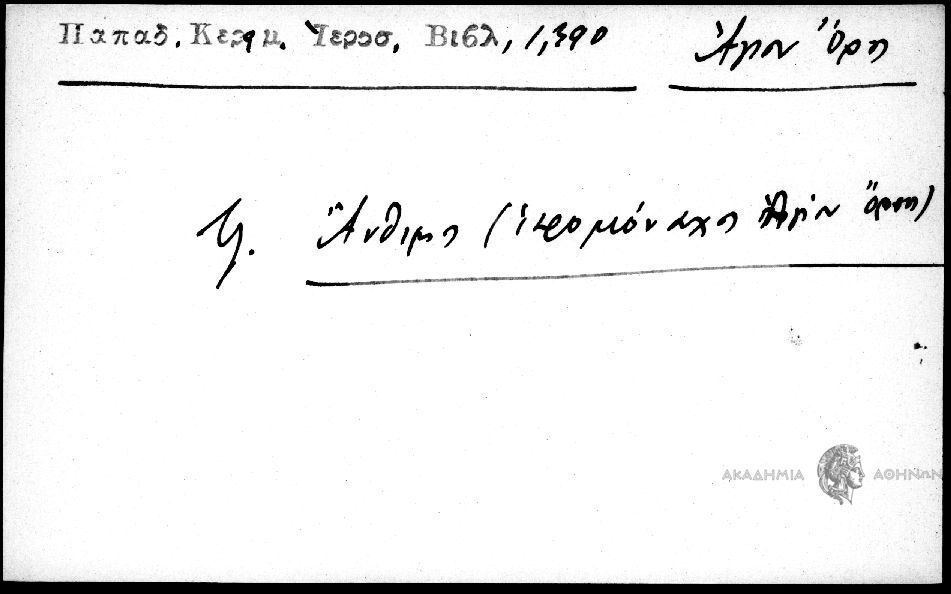 Παπαδ. Κεραμ. Ἱεροσ. Βιβλ, 1,390
Ἅγιον Ὄρος
Ἄνθιμος (ἱερομόναχος Ἁγίου ὄρους)
ΑΚΑΔΗΜΙΑ ΑΘΗΝΩΝ